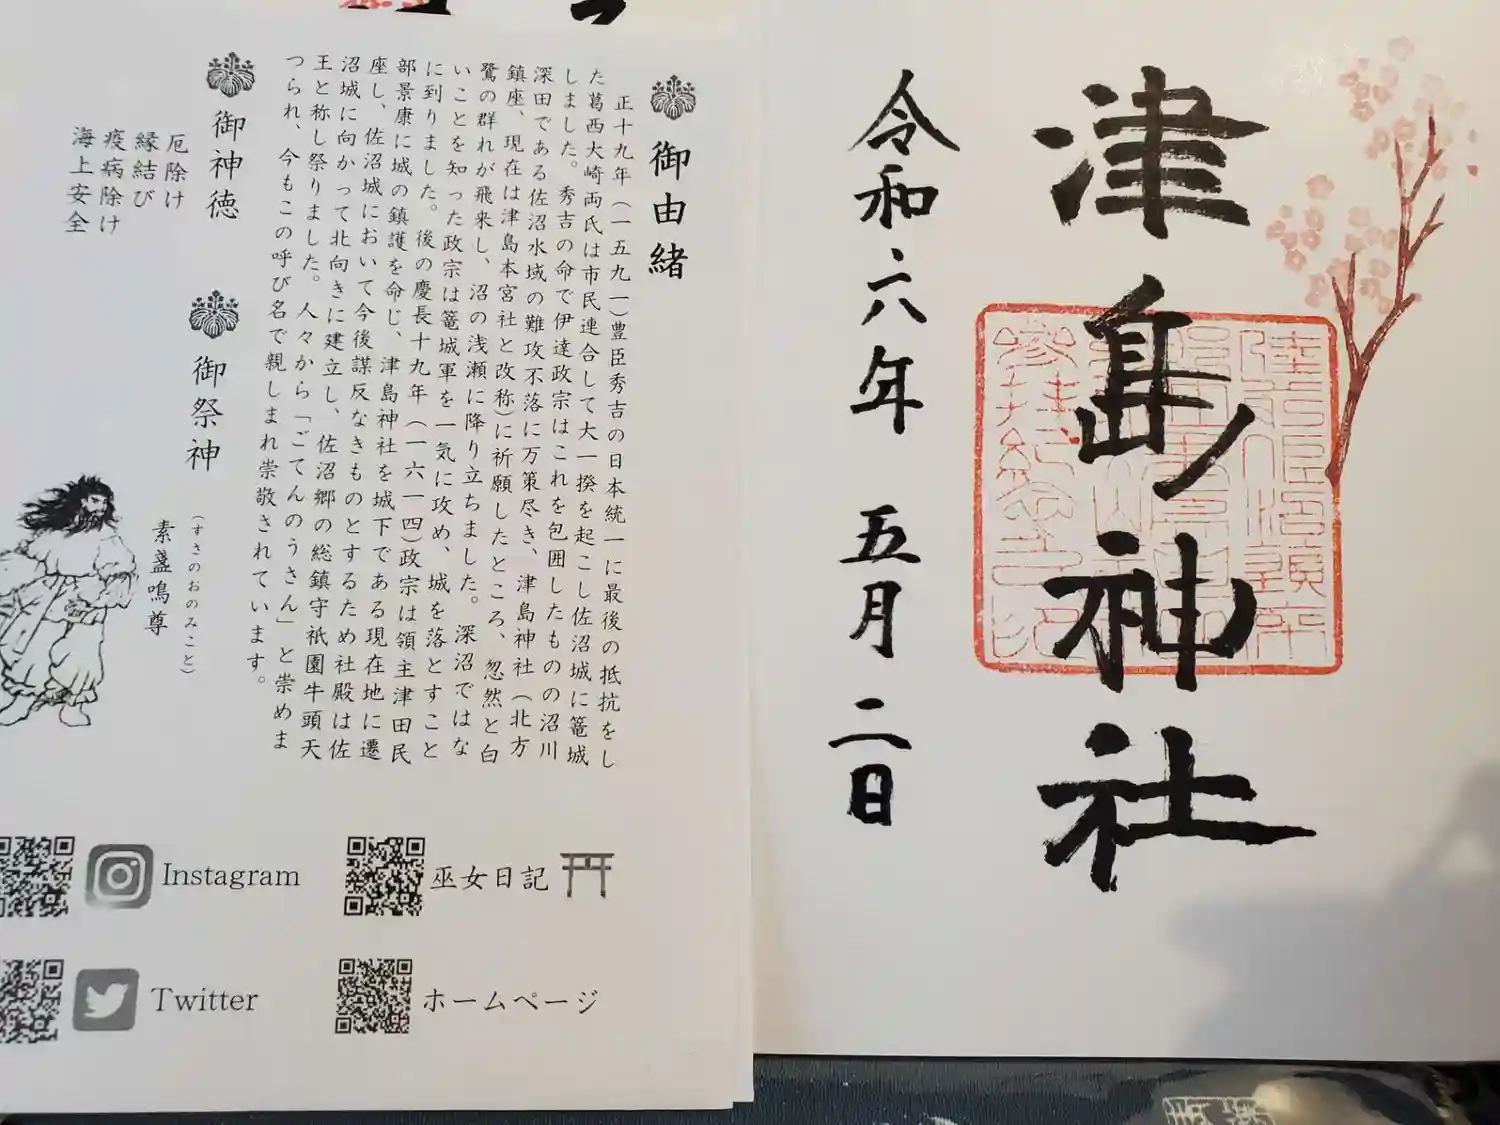 津島神社
令和六年 五月 二日
御由緒
正十九年（一五九一）豊臣秀吉の日本統一に最後の抵抗をし
た葛西大崎両氏は市民連合して大一揆を起こし佐沼城に篭城
しました。秀吉の命で伊達政宗はこれを包囲したものの沼川
深田である佐沼水域の難攻不落に万策尽き、津島神社（北方
鎮座、現在は津島本宮社と改称）に祈願したところ、忽然と白
鷺の群れが飛来し、沼の浅瀬に降り立ちました。深沼ではな
いことを知った政宗は篭城軍を一気に攻め、城を落とすこと
に到りました。後の慶長十九年（一六一四）政宗は領主津田民
部景康に城の鎮護を命じ、津島神社を城下である現在地に遷
座し、佐沼城において今後謀反なきものとするため社殿は佐
沼城に向かって北向きに建立し、佐沼郷の総鎮守祇園牛頭天
王と称し祭りました。人々から「ごてんのうさん」と崇めま
つられ、今もこの呼び名で親しまれ崇敬されています。
御神徳
厄除け
縁結び
疫病除け
海上安全
御祭神
（すさのおのみこと）
素盞嗚尊
Instagram
巫女日記
Twitter
ホームページ